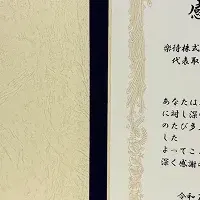 感
楽待株式
代表取
あなたは
に対し深
のたび多
した
よってこ
深く感謝の
令和